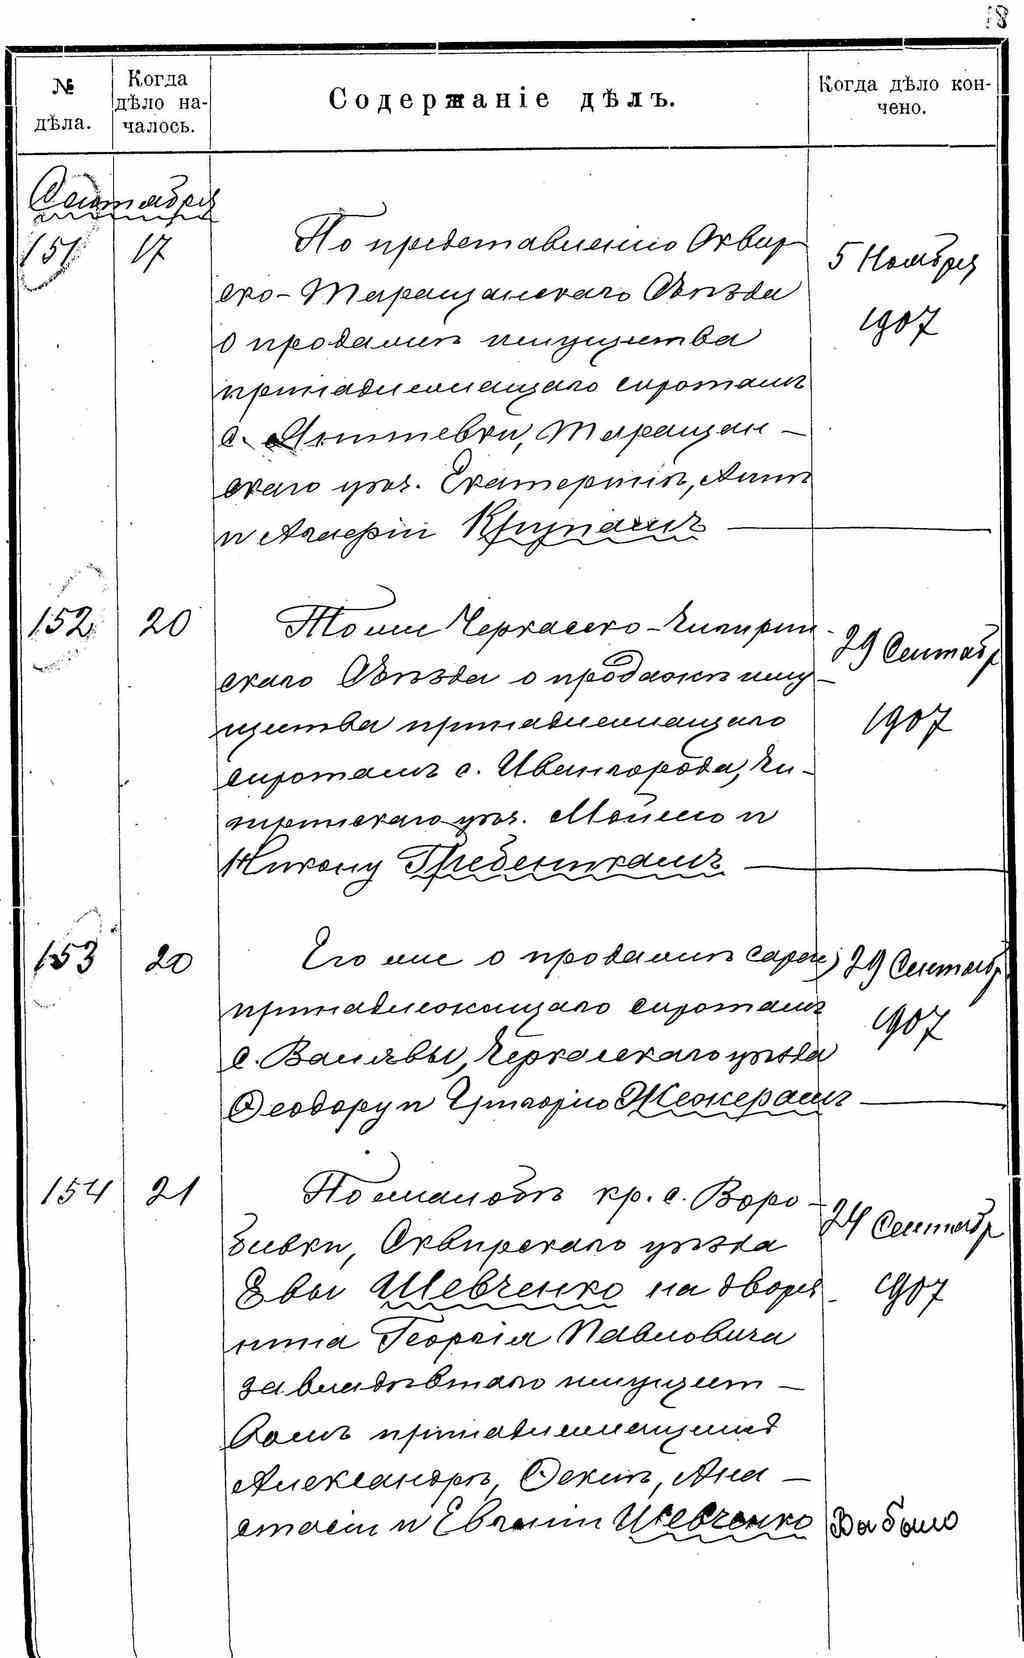 18
№ дѣла.
Когда дѣло началось.
Содержаніе дѣлъ.
Когда дѣло кончено.
Сентября
151 17 По представленію Сквир-
ско-Таращанскаго Съѣзда
о продажѣ имущества
принадлежащаго сиротамъ
с. Таращан-
скаго уѣз. Екатеринѣ, Аннѣ
и Крупамъ
5 Ноября
1907
152 20 То же Черкасско-Чигирин-
скаго Съѣзда о продажѣ иму-
щества принадлежащаго
сиротамъ с. Ивангорода, Чи-
гиринскаго уѣз. Мойсею и
Никону Гребенникамъ
29 Сентябр
1907
153 20 Его же о продажѣ сарая
принадлежащаго сиротамъ
с. Валявы, Черкасскаго уѣзда
Ѳеодору и Григорію Жежерамъ
29 Сентябр
1907
154 21 По жалобѣ кр. с. Воро-
бивки, Сквирскаго уѣзда
Евы Шевченко на дворя-
нина Георгія Павловича
завладѣвшаго имущест-
вомъ принадлежащимъ
Александрѣ, Ѳеклѣ, Ана-
стасіи и Евгеніи Шевченко
24 Сентябр
1907